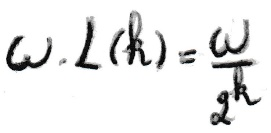 ω.L(k) = ω/2^k